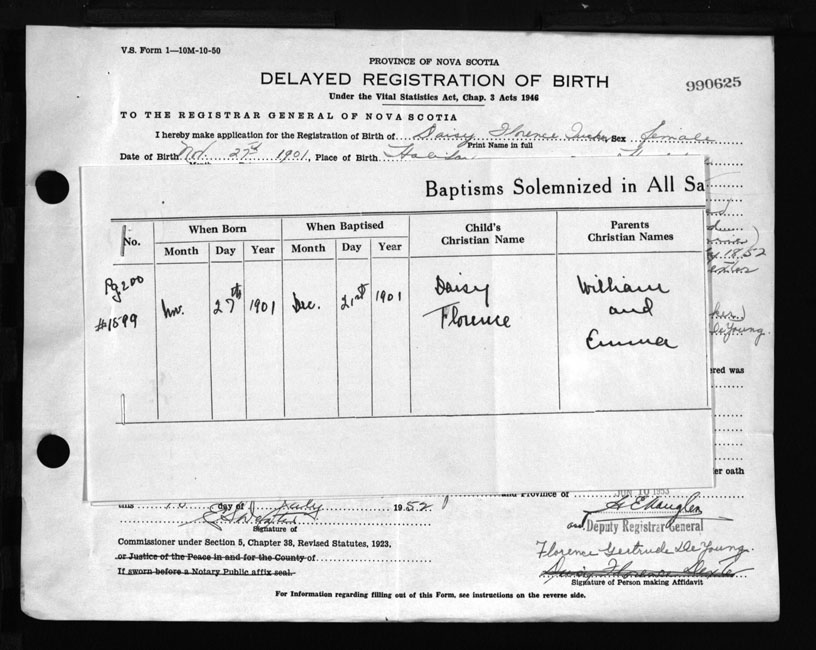 V.S. Form 1—10M-10-50
PROVINCE OF NOVA SCOTIA
DELAYED REGISTRATION OF BIRTH
990625
Under the Vital Statistics Act, Chap. 3 Acts 1946
TO THE REGISTRAR GENERAL OF NOVA SCOTIA
I hereby make application for the Registration of Birth of Daisy Florence Sex female
Print Name in full
Date of Birth Nov. 27th 1901, Place of Birth Halifax
Baptisms Solemnized in All Sa
No. When Born When Baptised Child's Christian Name Parents Christian Names
Month Day Year Month Day Year
Pg 200
#1599 Nov. 27th 1901 Dec. 21st 1901 Daisy Florence William and Emma
1852
DeYoung.
red was
er oath
and Province of JUN 10 1953
this day of July 1952
Signature of
Deputy Registrar General
and
Commissioner under Section 5, Chapter 38, Revised Statutes, 1923,
or Justice of the Peace in and for the County of
If sworn before a Notary Public affix seal.
Florence Gertrude DeYoung.
Daisy Florence Dexter
Signature of Person making Affidavit
For Information regarding filling out of this Form, see instructions on the reverse side.